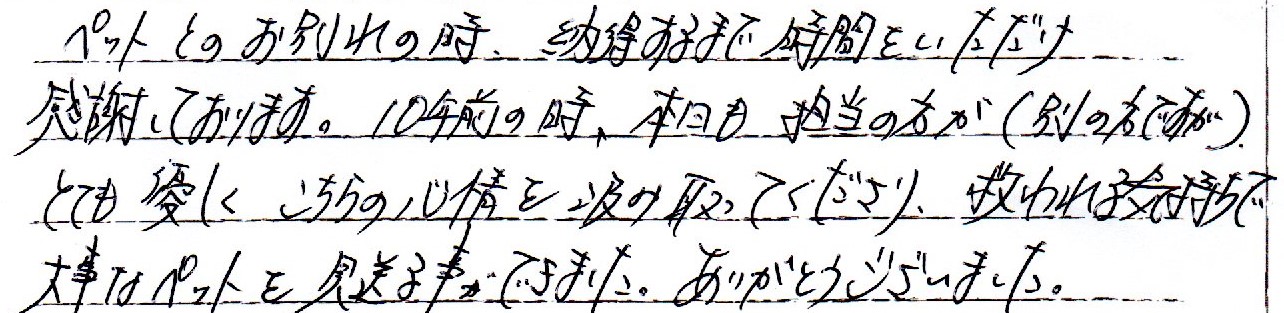 ペットとのお別れの時、納得するまで時間をいただけ
感謝しております。10年前の時、本日も担当の方が（別の方ですが）
とても優しくこちらの心情を汲み取ってくださり、救われる気持ちで
大事なペットを見送る事ができました。ありがとうございました。